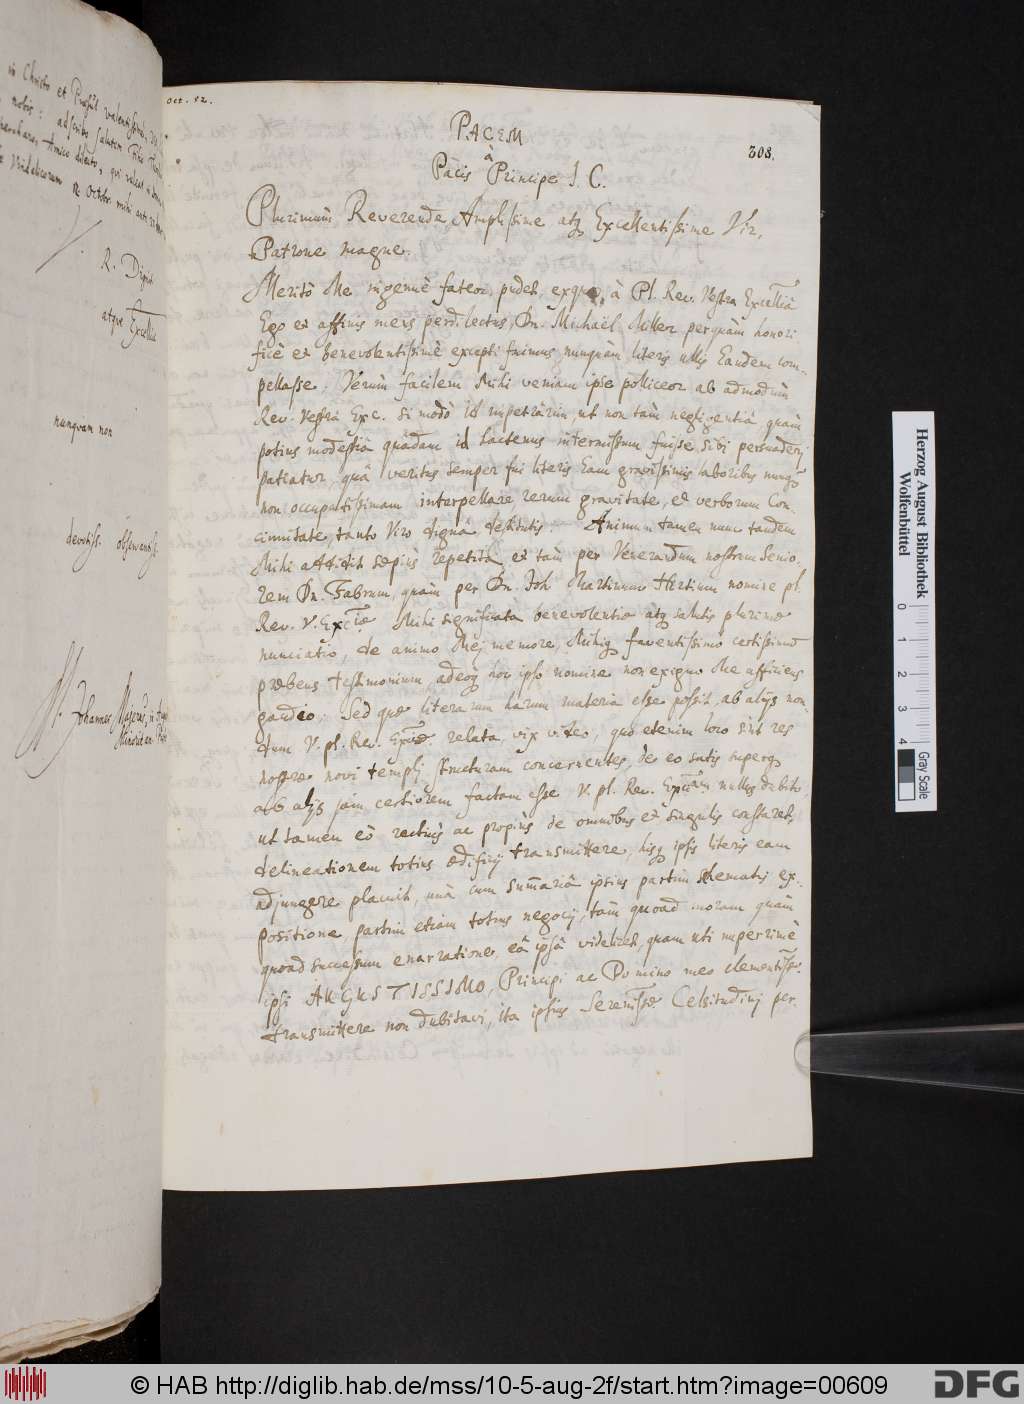 in Christo et
nobis: adscribo salutem
Amico dilecto, qui valeat
R. Dignit
atque Excelliæ
nunquam non
devotiss. observantiss.
M. Johannes
Oct. 52.
308.
PACEM
â
Pacis Principe J. C.
Plurimùm Reverende, Amplissime atq Excellentissime Vir,
Patrone magne.
Meritò Me ingenuè fateor, pudet, ex quo à Pl. Rev. Vestra Excellâ
Ego et affinis meus perdilectus, Dn. Michaël Miller perquàm honori-
ficè et benevolentissimè excepti fuimus, nunquàm literis ullis Eandem com-
pellasse. Verùm facilem Mihi veniam ipse polliceor ab admodùm
Rev. Vestra Exc. si modò id impetrârim, ut non tàm negligentiâ, quàm
potius modestiâ quâdam id hactenus intermissum fuisse, sibi persuaderi
patiatur, quâ veritus semper fui literis Eam gravissimis laboribus nunq
non occupatissimam interpellare rerum gravitate, et verborum con-
cinnitate, tanto Viro dignâ, destitutis: Animum tamen nunc tandem
Mihi addidit sæpius repetita et tàm per Venerandum nostrum Senio-
rem Dn. Fabrum, quàm per Dn. Joh. Martinum Hirtium nomine pl.
Rev. V. Exctiæ Mihi significata benevolentiæ atq salutis plurimæ
nunciatio, de animo Mej memore, Mihiq faventissimo certissimum
præbens testimonium, adeoq hoc ipso nomine non exiguo Me afficiens
gaudio. Sed quæ literarum harum materia esse possit, ab alijs non-
dum V. pl. Rev. Exciæ relata, vix video, quo etenim loco sint res
nostræ novi templj structuram concernentes, de eo satis superq
ab alijs jam certiorem factam esse V. pl. Rev. Exciam nullus dubito,
ut tamen eò rectiùs ac propiùs de omnibus et singulis constaret,
delineationem totius ædificij transmittere, hisq ipsis literis eam
adjungere placuit, unà cum summariâ ipsius partim schematis ex-
positione, partim etiam totius negocij, tàm quoad moram quàm
quoad successum enarratione, eâ ipsâ videlicet, quam uti nuperrimè
ipsi AUGUSTISSIMO, Principi ac Domino meo clementissº
transmittere non dubitavi, ita ipsius Serenissæ Celsitudinj per-
Herzog August Bibliothek
Wolfenbüttel
0 1 2 3 4
Gray Scale
© HAB http://diglib.hab.de/mss/10-5-aug-2f/start.htm?image=00609
DFG